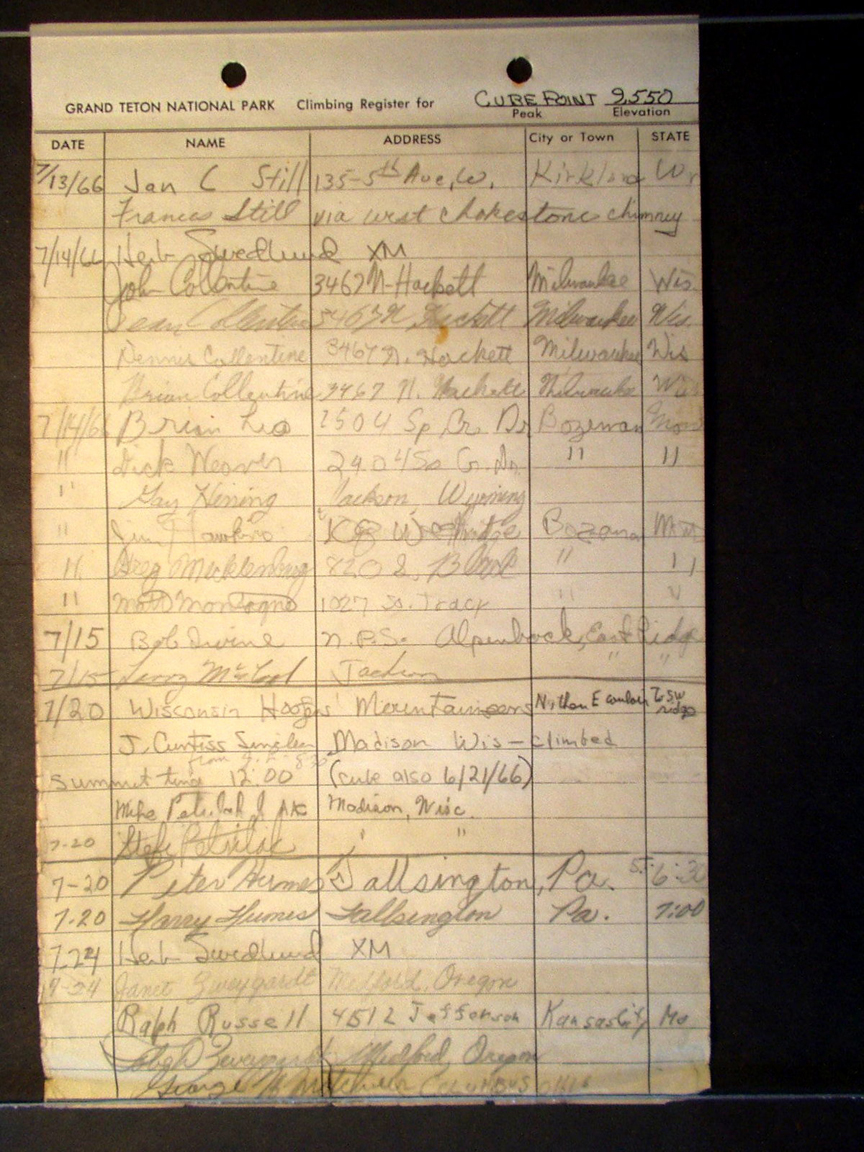 GRAND TETON NATIONAL PARK Climbing Register for CUBE POINT 9,550
Peak Elevation
DATE NAME ADDRESS City or Town STATE
7/13/66 Jan C Still 135-5th Ave, W. Kirkland
Frances Still via west chokestone chimney
7/14/66 Herb Swedlund XM
John Collentine 3467 N. Hackett Milwaukee Wis
Collentine 3467 N Hackett Milwaukee Wis
Dennis Collentine 3467 N. Hackett Milwaukee Wis
Brian Collentine 3467 N. Hackett Milwaukee Wis
7/14/66 Brian Leo 1504 Sp Br. Dr Bozeman Mon
" Dick Weaver 2904 So " "
" Gay Jackson Wyoming
" Jim Hawkins Bozeman
" Greg Mecklenburg 820 S. " "
" 1027 So. Tracy " "
7/15 Bob Irvine N.P.S. East Ridge
7/15 Leroy McCool Jackson " "
7/20 Wisconsin Hoofers' Mountaineers
J. Curtiss Madison Wis - climbed
summit time 12:00 (cube also 6/21/66)
Mike Madison, Wisc.
7-20 Steve " "
7-20 Peter Humes Fallsington, Pa.
7-20 Harry Humes Fallsington Pa. 7:00
7.24 Herb Swedlund XM
7-24 Janet Medford, Oregon
Ralph Russell 4512 Jefferson Kansas City Mo
Medford, Oregon
George Columbus Ohio